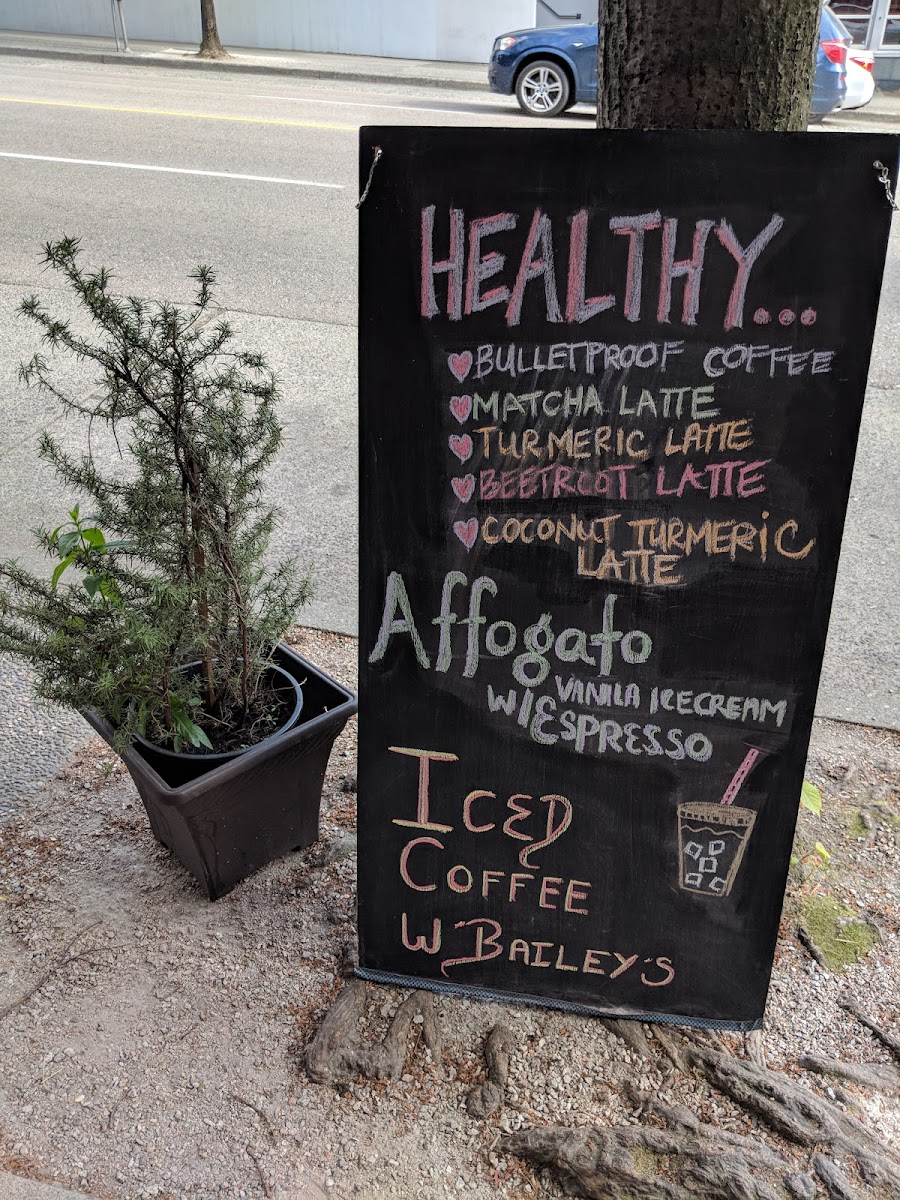 HEALTHY...
BULLETPROOF COFFEE
MATCHA LATTE
TURMERIC LATTE
BEETROOT LATTE
COCONUT TURMERIC
LATTE
Affogato
VANILA ICECREAM
W/ESPRESSO
ICED
COFFEE
W BAILEY'S